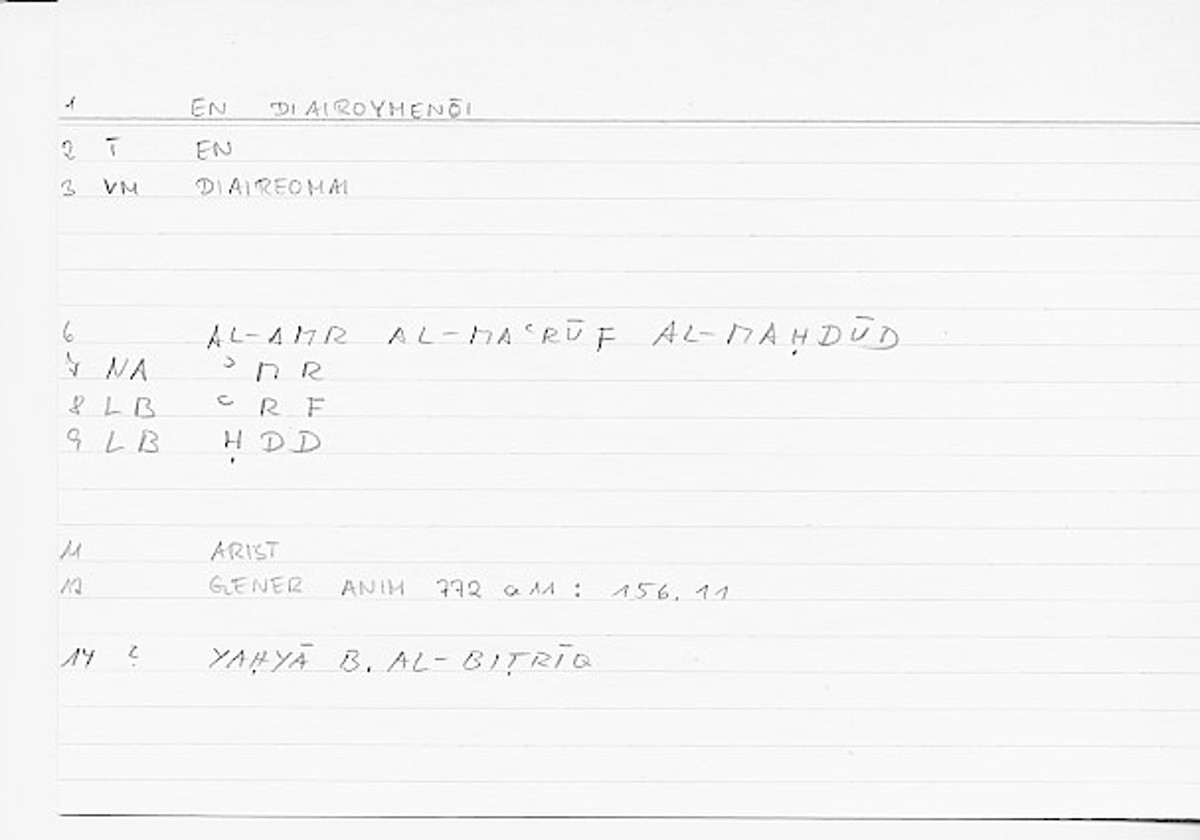 1 EN DIAIROYMENŌI
2 T̄ EN
3 VM DIAIREOMAI
6 AL-AMR AL-MAʿRŪF AL-MAḤDŪD
7 NA ʾ M R
8 LB ʿ R F
9 LB Ḥ D D
11 ARIST
12 GENER ANIM 772 a 11 : 156.11
14 ? YAḤYĀ B. AL-BIṬRĪQ